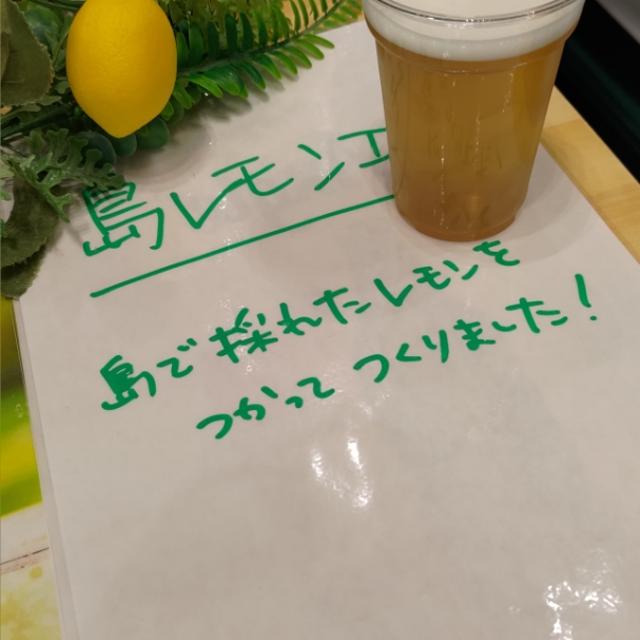 島レモンエ
島で採れたレモンを
つかってつくりました!